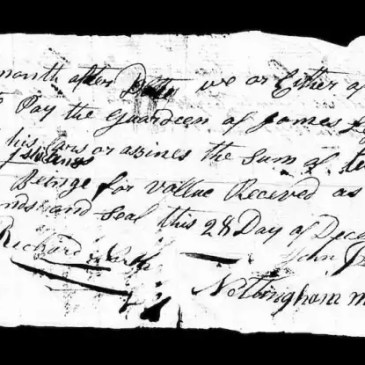 month after Date we or Either of
Pay the Guardeen of James
his ears or assines the Sum of
Beinge for vallue Receved as
and Seal this 28 Day of Dece
Richard John
Nottingham